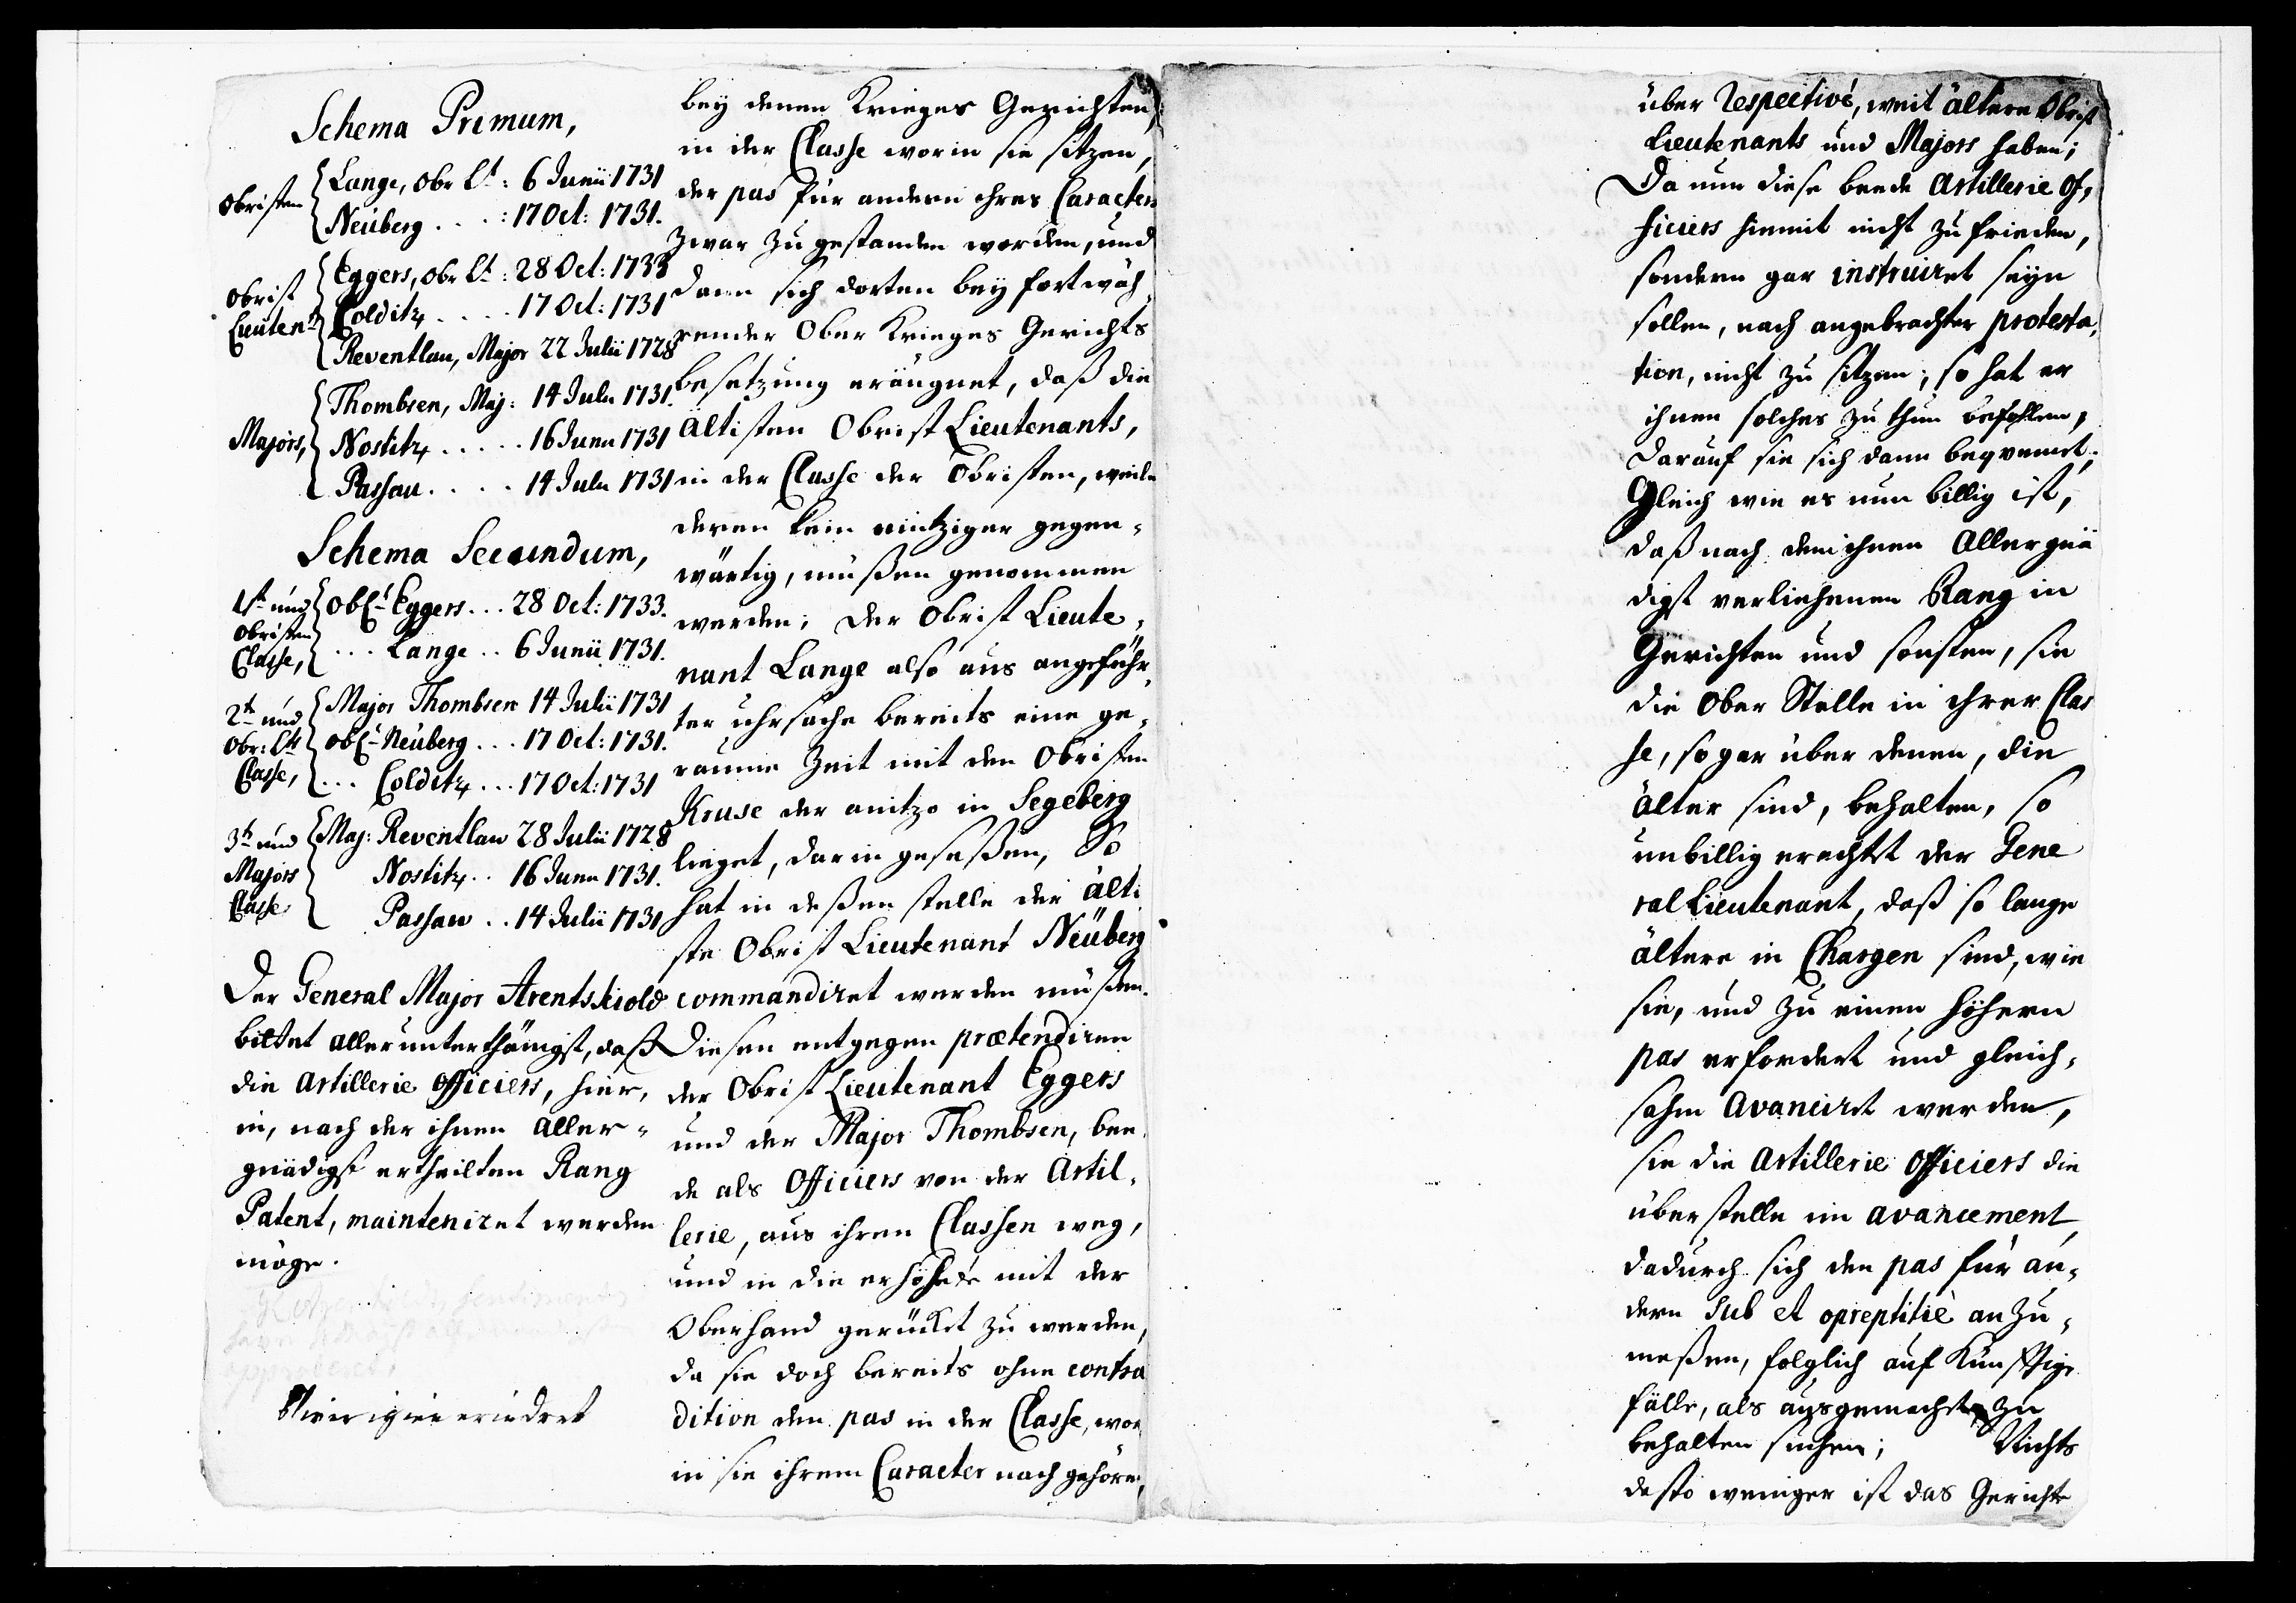 Schema Primum,
Obristen
Lange, Obr Lt: 6 Junii 1731
Neüberg . . . : 17 Oct: 1731.
Obrist Lieutents
Eggers, Obr Lt: 28 Oct: 1733
Colditz . . . . 17 Oct: 1731
Reventlau, Major 22 Julii 1728
Majors,
Thombsen, Maj: 14 Julii 1731.
Nostitz . . . . . 16 Junii 1731
Passau . . . . 14 Julii 1731
Schema Secundum,
1te und
Obristen
Classe,
Obl. Eggers . . . 28 Oct: 1733.
. . . Lange . . 6 Junii 1731.
2te und
Obr: Lts
Classe,
Major Thombsen 14 Julii 1731
Obl. Neüberg . . . 17 Oct: 1731.
. . . Colditz . . . 17 Oct: 1731
3te und
Majors
Classe,
Maj: Reventlau 28 Julii 1728
Nostitz . . 16 Junii 1731.
Passau . . 14 Julii 1731
Der General Major Arentskiold
bittet allerunterthänigst, daß
die Artillerie Officiers, hier,
in, nach der ihnen Aller-
gnädigst ertheilten Rang
Patent, mainteniret werden
möge.
bey denen Krieges Gerichten,
in der Classe worin sie sitzen,
der pas für andern ihres Caracters
zwar zu gestanden worden, und
dann sich dorten bey fortwäh-
render Ober Krieges Gerichts
besetzung eräugnet, daß die
Ältisten Obrist Lieutenants,
in der Classe der Obristen, weile
deren kein eintziger gegen-
wärtig, müßen genommen
werden; der Obrist Lieute-
nant Lange also aus angeführ-
ter uhrsache bereits eine ge-
raume Zeit mit den Obristen
Kruse der anitzo in Segeberg
lieget, darin geseßen, So
hat in deßen stelle der älti
ste Obrist Lieutenant Neüberg
commandiret werden müßen.
Diesen entgegen prætendiren
der Obrist Lieutenant Eggers
und der Major Thombsen, bee-
de als Officiers von der Artil-
lerie, aus ihren Classen weg,
und in die erhöhete mit der
Oberhand gerücket zu werden,
da sie doch bereits ohne contra
dition den pas in der Classe, wor
in sie ihrem Caracter nach gehören,
über respectivè, weit ältere Obrist
Lieutenants und Majors haben;
Da nun diese beede Artillerie Of-
ficiers hiemit nicht zu frieden,
sondern gar instruiret seyn
sollen, nach angebrachter protesta-
tion, nicht zu sitzen; so hat er
ihnen solches zu thun befohlen,
darauf sie sich dann beqvemet;
Gleich wie es nun billig ist,
daß nach dem ihnen Allergnä
digst verliehenen Rang in
Gerichten und sonsten, sie
die Ober Stelle in ihrer Clas
se, sogar über denen, die
älter sind, behalten, so
unbillig erachtet der Gene
ral Lieutenant, daß so lange
ältere in Chargen sind, wie
sie, und zu einen höhern
pas erfordert und gleich-
sahm avanciret werden,
sie die Artillerie Officiers die
überstelle im avancement,
dadurch sich den pas für an-
dern sub et opreptitiè anzu-
maßen, folglich auf Künfftige
fälle, als ausgemacht zu
behalten suchen; Nichts
desto weniger ist das Gericht